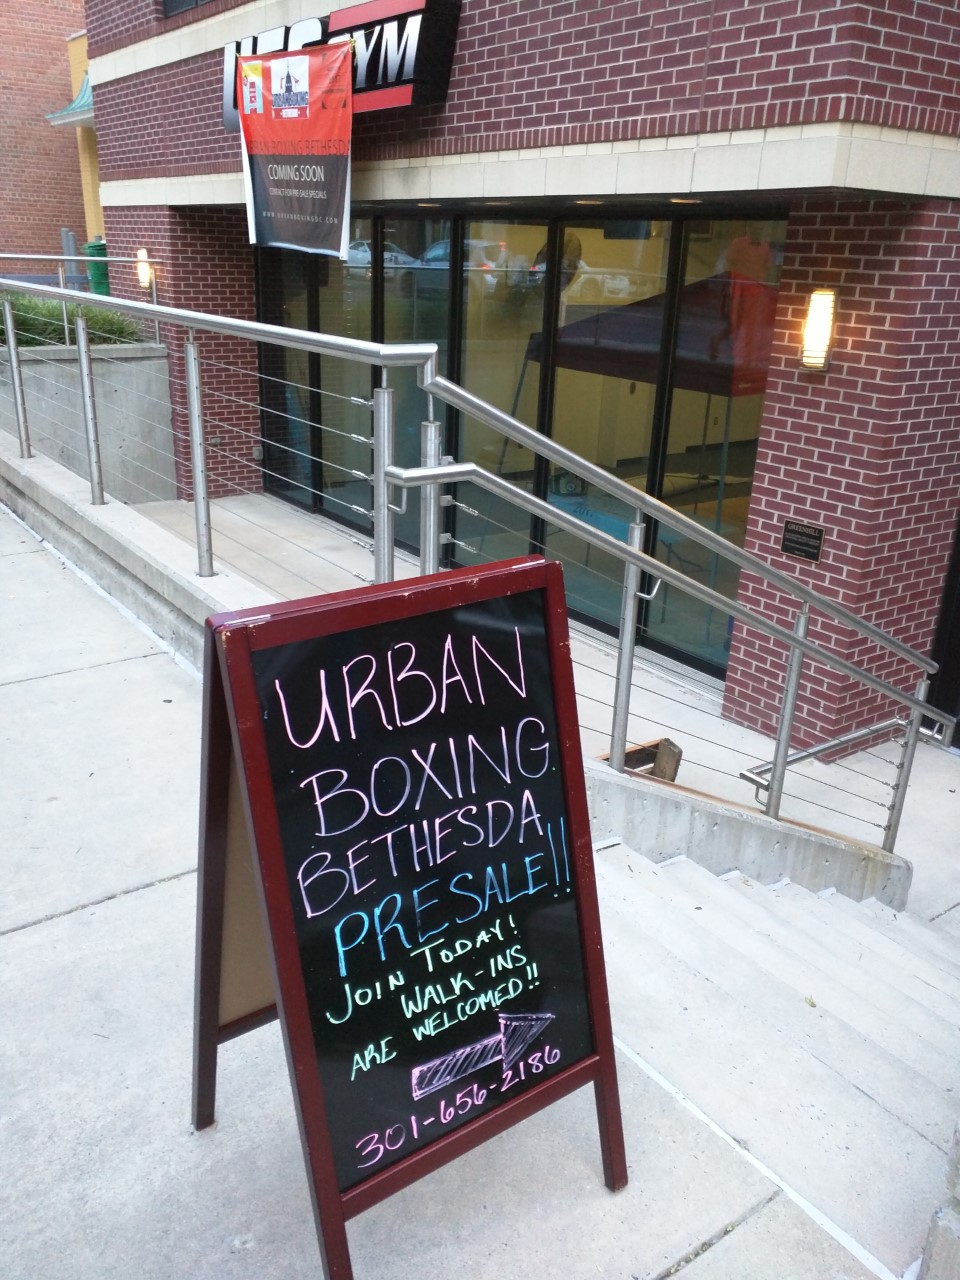 UFC GYM
URBANBOXING
URBAN BOXING BETHESDA
COMING SOON
CONTACT FOR PRE-SALE SPECIALS
WWW.URBANBOXINGDC.COM
GREENHILL
URBAN
BOXING
BETHESDA
PRESALE!!
JOIN TODAY!
WALK-INS
ARE WELCOMED!!
301-656-2186